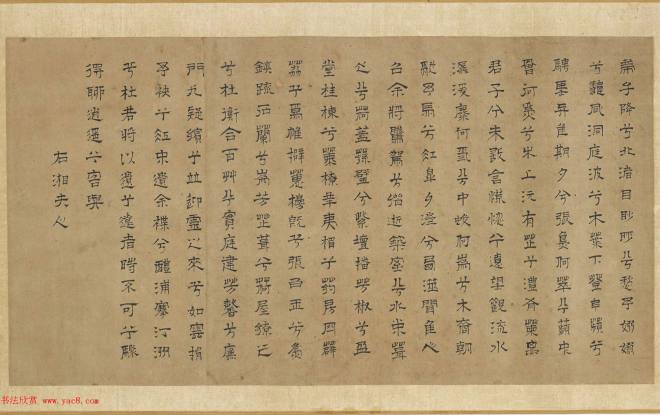 帝子降兮北渚目眇眇兮愁予嫋嫋
兮秋風洞庭波兮木葉下登白薠兮
騁望與佳期夕兮張鳥何萃兮蘋中
罾何為兮木上沅有芷兮澧有蘭思
君子兮未敢言慌惚兮遠望觀流水
潺湲麋何為兮中蛟何為兮水裔朝
馳予馬兮江皋夕濟兮西澨聞佳人
召余將騰駕兮偕逝築室兮水中葺
之兮荷蓋蓀壁兮紫壇播芳椒兮盈
堂桂棟兮蘭橑辛夷楣兮葯房罔薜
荔兮為帷擗蕙櫋既兮張白玉兮為
鎮疏石蘭兮為芳芷葺兮荷屋繚之
兮杜衡合百草兮實庭建芳馨兮廡
門九疑繽兮並迎靈之來兮如雲捐
予袂兮江中遺余褋兮醴浦搴汀洲
兮杜若將以遺兮遠者時不可兮驟
得聊逍遙兮容與
右湘夫人
书法欣赏 www.yac8.com